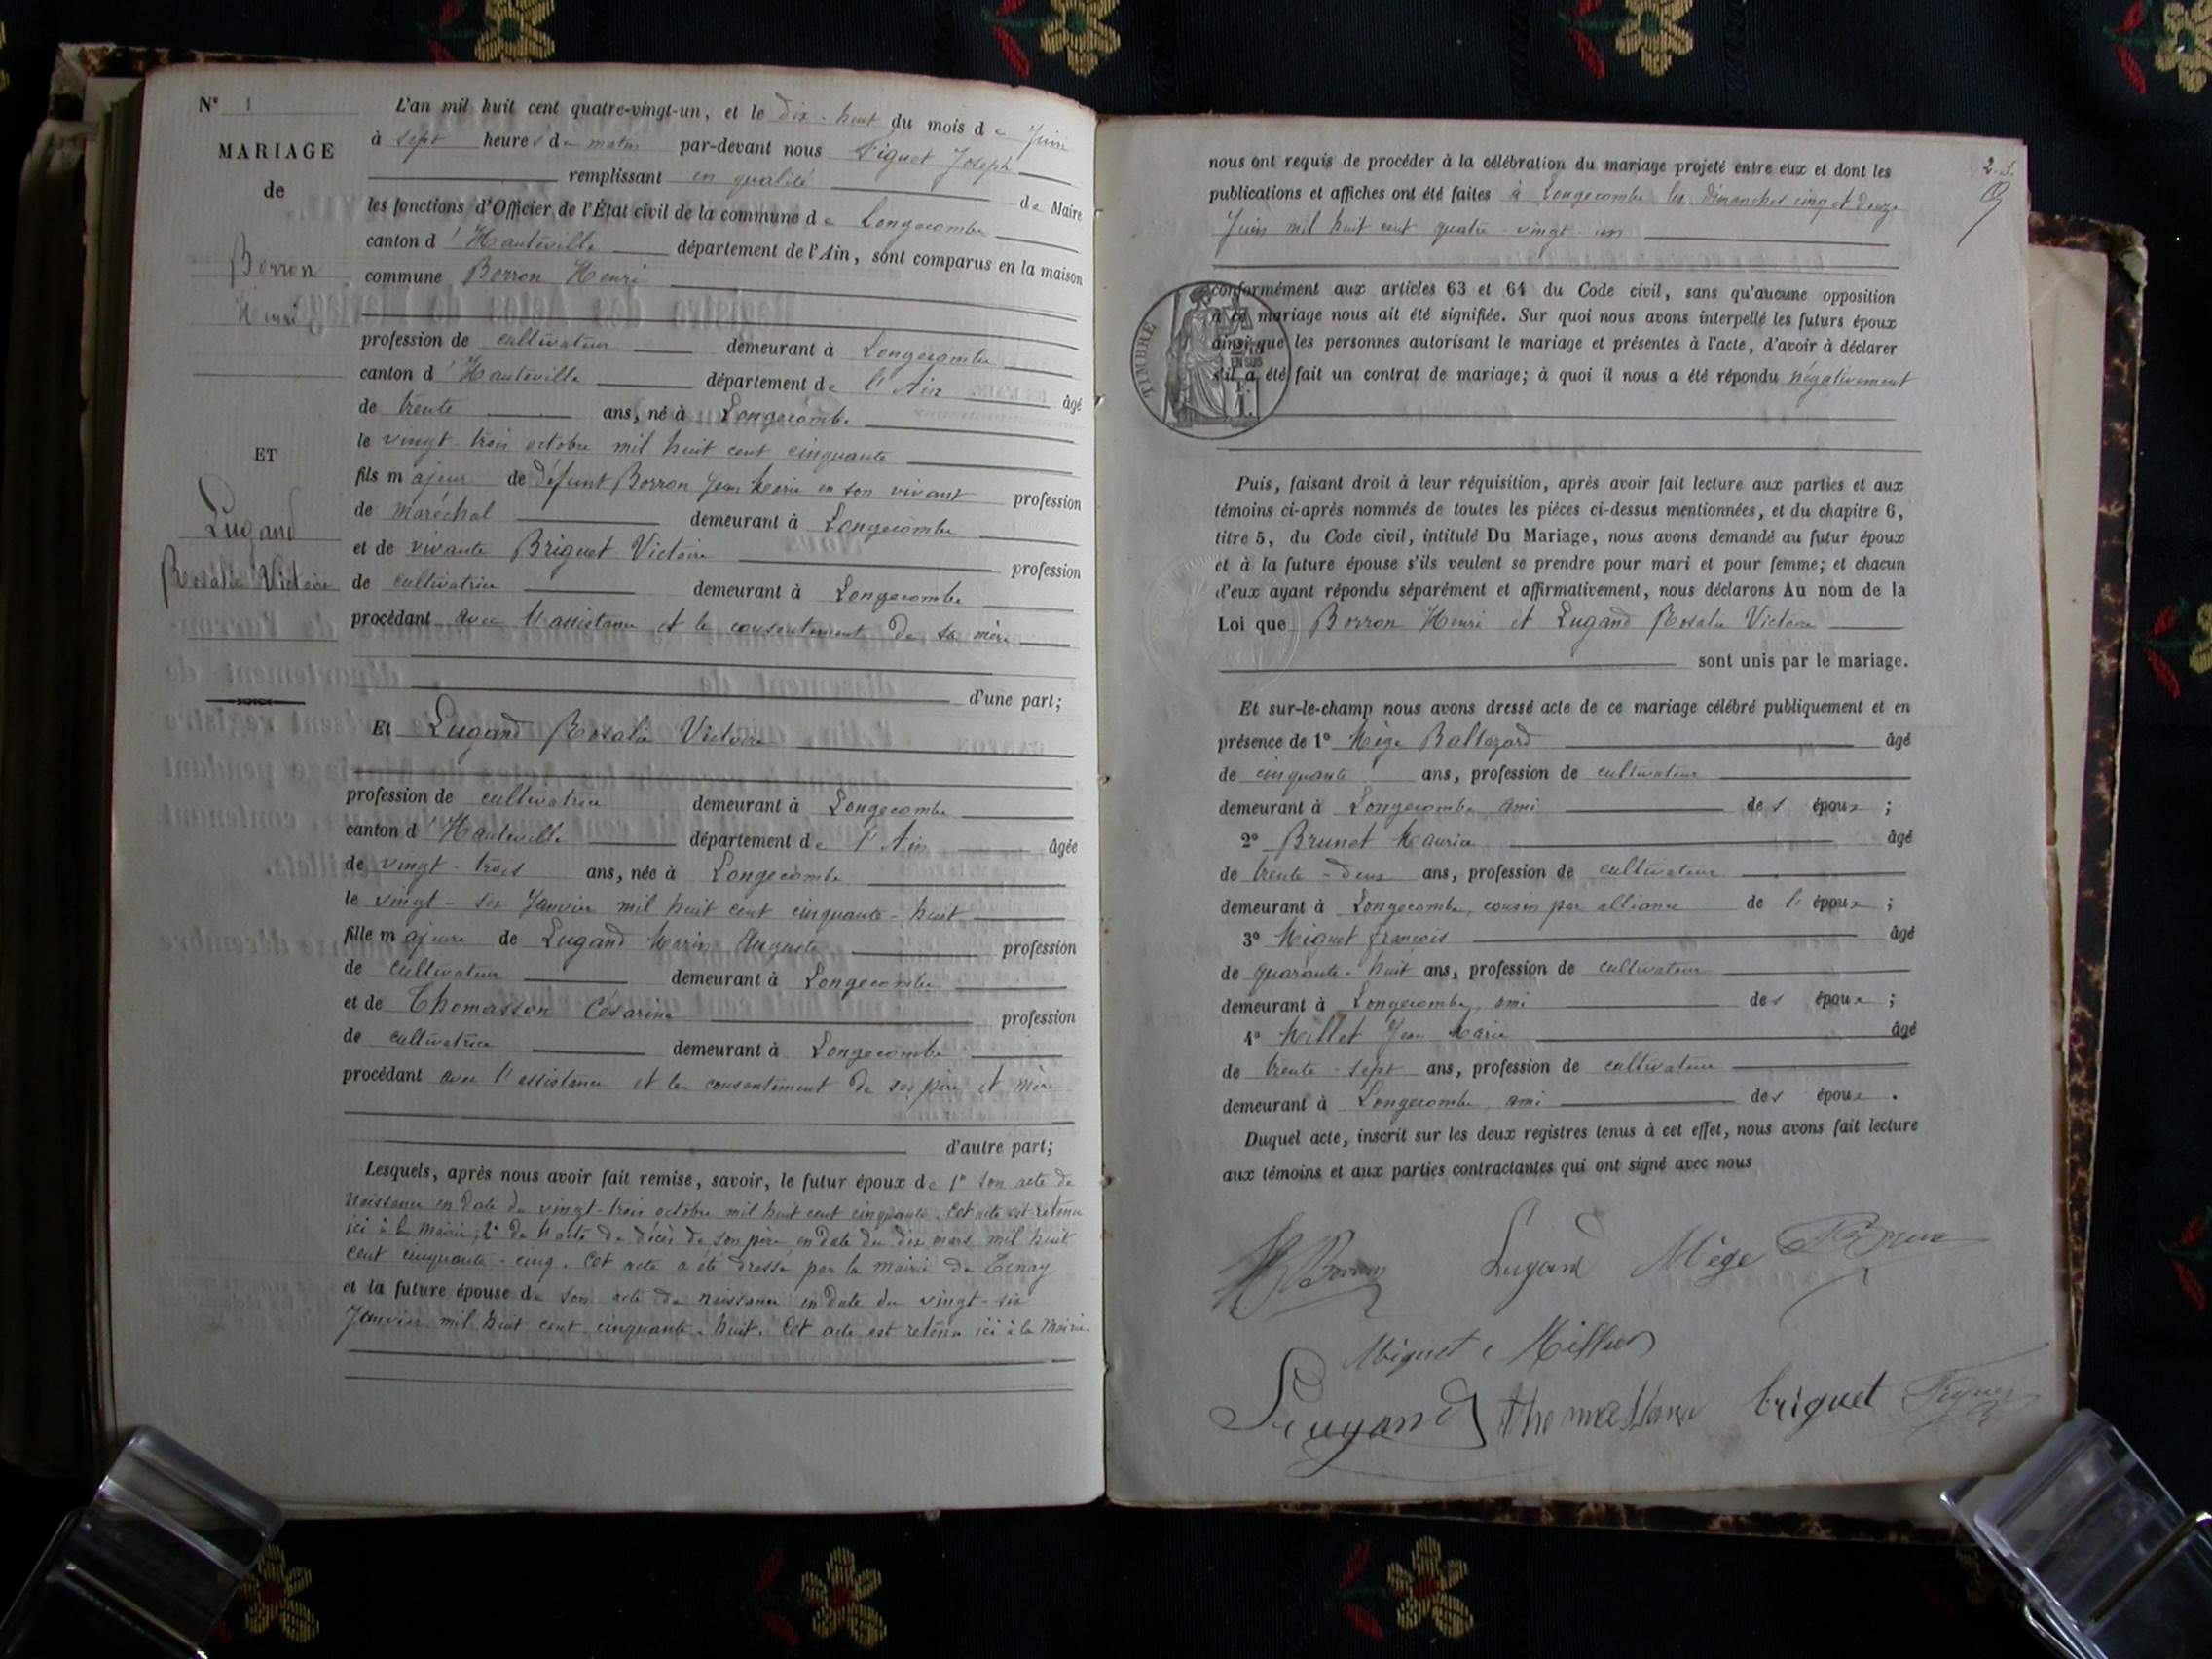 N° 1
MARIAGE
de
Borron
Henri
ET
Lugand
Rosalie Victoire
L'an mil huit cent quatre-vingt-un, et le dix-huit du mois de Juin
à sept heures du matin par-devant nous Figuet Joseph
remplissant en qualité de Maire
les fonctions d'Officier de l'État civil de la commune de Longecombe
canton d'Hauteville département de l'Ain, sont comparus en la maison
commune Borron Henri
profession de cultivateur demeurant à Longecombe
canton d'Hauteville département de l'Ain âgé
de trente ans, né à Longecombe
le vingt-trois octobre mil huit cent cinquante
fils majeur de défunt Borron Jean Marie en son vivant profession
de maréchal demeurant à Longecombe
et de vivante Briguet Victoire profession
de cultivatrice demeurant à Longecombe
procédant avec l'assistance et le consentement de sa mère
d'une part;
Et Lugand Rosalie Victoire
profession de cultivatrice demeurant à Longecombe
canton d'Hauteville département de l'Ain âgée
de vingt-trois ans, née à Longecombe
le vingt-six Janvier mil huit cent cinquante-huit
fille majeure de Lugand Marin Auguste profession
de cultivateur demeurant à Longecombe
et de Thomasson Césarine profession
de cultivatrice demeurant à Longecombe
procédant avec l'assistance et le consentement de ses père et mère
d'autre part;
Lesquels, après nous avoir fait remise, savoir, le futur époux de 1° son acte de
naissance en date du vingt-trois octobre mil huit cent cinquante. Cet acte est retenu
ici à la Mairie; 2° de l'acte de décès de son père en date du dix mars mil huit
cent cinquante-cinq. Cet acte a été dressé par la mairie de Tenay
et la future épouse de son acte de naissance en date du vingt-six
Janvier mil huit cent cinquante-huit. Cet acte est retenu ici à la Mairie.
2. f.
nous ont requis de procéder à la célébration du mariage projeté entre eux et dont les
publications et affiches ont été faites à Longecombe les dimanches cinq et douze
Juin mil huit cent quatre-vingt-un
conformément aux articles 63 et 64 du Code civil, sans qu'aucune opposition
à ce mariage nous ait été signifiée. Sur quoi nous avons interpellé les futurs époux
ainsi que les personnes autorisant le mariage et présentes à l'acte, d'avoir à déclarer
s'il a été fait un contrat de mariage; à quoi il nous a été répondu négativement
TIMBRE
EN SUS
Puis, faisant droit à leur réquisition, après avoir fait lecture aux parties et aux
témoins ci-après nommés de toutes les pièces ci-dessus mentionnées, et du chapitre 6,
titre 5, du Code civil, intitulé Du Mariage, nous avons demandé au futur époux
et à la future épouse s'ils veulent se prendre pour mari et pour femme; et chacun
d'eux ayant répondu séparément et affirmativement, nous déclarons Au nom de la
Loi que Borron Henri et Lugand Rosalie Victoire
sont unis par le mariage.
Et sur-le-champ nous avons dressé acte de ce mariage célébré publiquement et en
présence de 1° Mège Baltazard âgé
de cinquante ans, profession de cultivateur
demeurant à Longecombe, ami des époux ;
2° Brunet Maurice âgé
de trente-deux ans, profession de cultivateur
demeurant à Longecombe, cousin par alliance de l'époux ;
3° Miguet françois âgé
de quarante-huit ans, profession de cultivateur
demeurant à Longecombe, ami des époux ;
4° Millet Jean Marie âgé
de trente-sept ans, profession de cultivateur
demeurant à Longecombe, ami des époux .
Duquel acte, inscrit sur les deux registres tenus à cet effet, nous avons fait lecture
aux témoins et aux parties contractantes qui ont signé avec nous
H Borron Lugand Mège
Miguet Millet
Lugand briguet